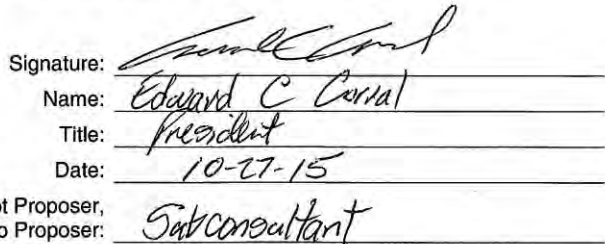 Signature:
Name: Edward C Corral
Title: President
Date: 10-27-15
ot Proposer,
o Proposer: Subconsultant